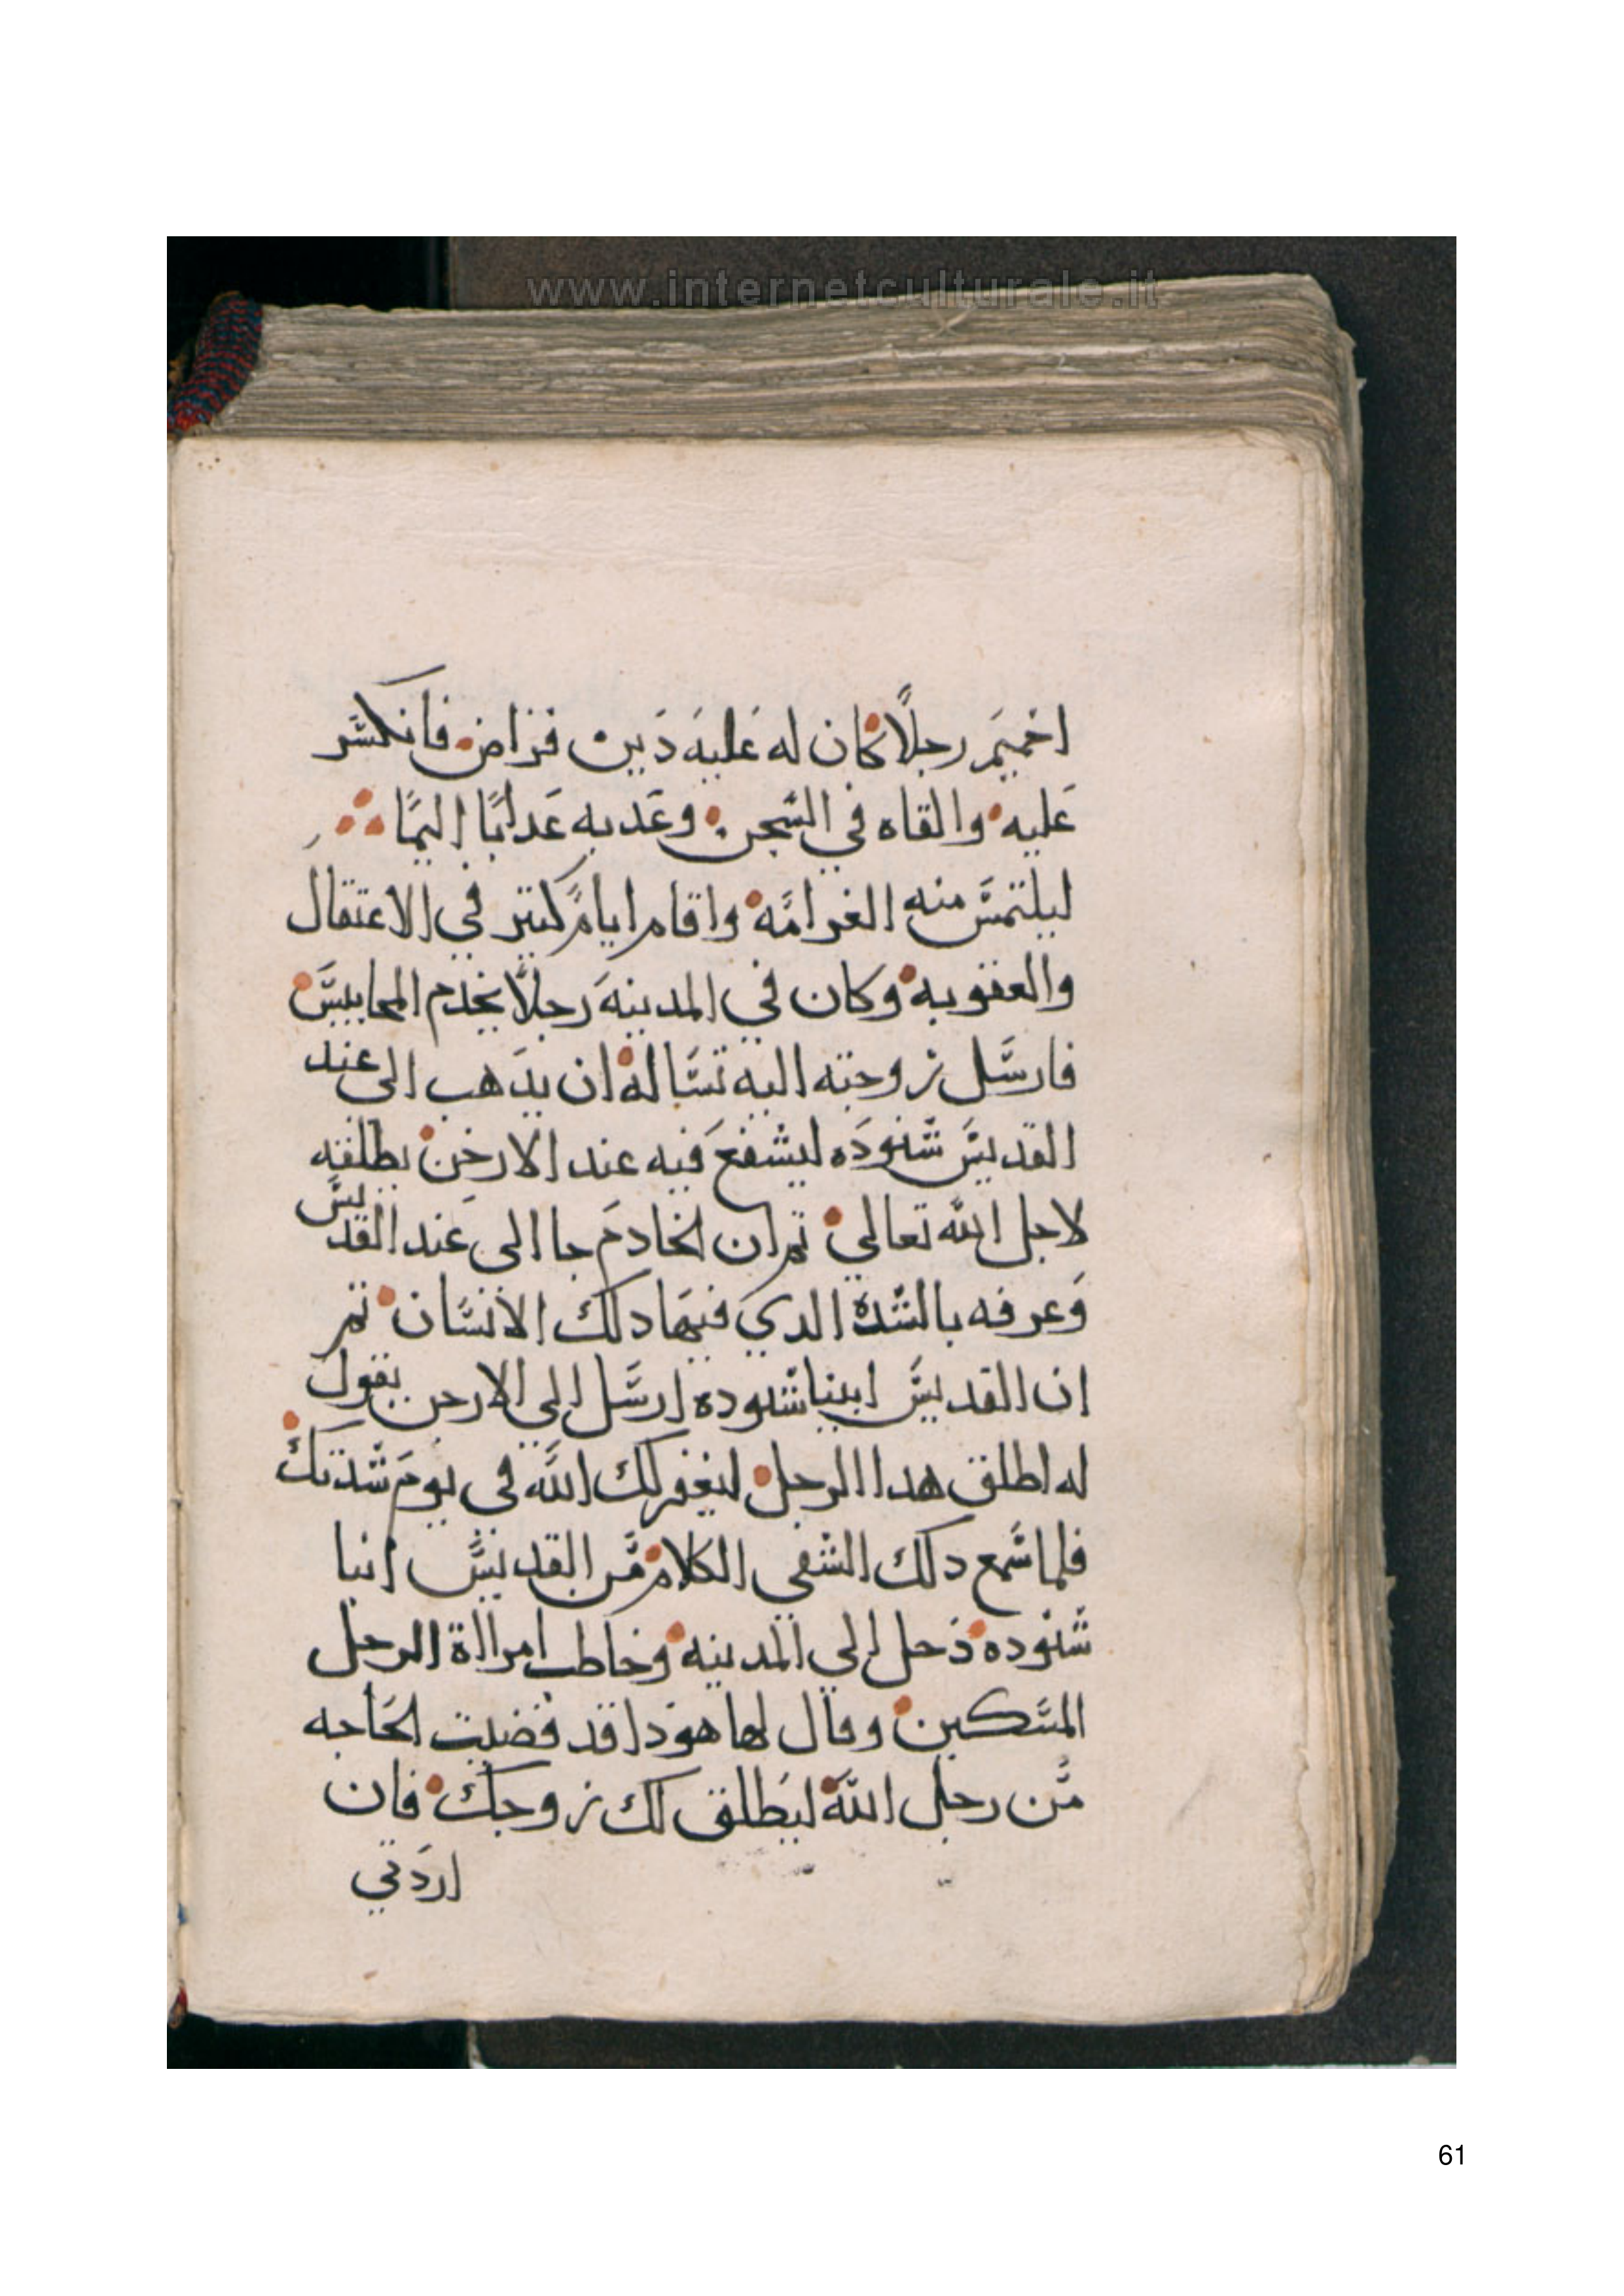 www.internetculturale.it
اخميم رجلًا كان له عليه دين قراض فانكسر
عليه والقاه في السجن وعدبه عدابًا اليمًا
ليلتمس منه الغرامه واقام ايامً كتير في الاعتقال
والعقوبه وكان في المدينه رجلًا يخدم المحابيس
فارسل زوجته اليه تساله ان يدهب الى عند
القديس شنوده ليشفع فيه عند الارخن يطلقه
لاجل الله تعالي تم ان الخادم جا الى عند القديس
وعرفه بالشدة الدي فيها دلك الانسان تم
ان القديس ابينا شنوده ارسل الى الارخن يقول
له اطلق هدا الرجل ليغفر لك الله في يوم شدتك
فلما سمع دلك الشقي الكلام من القديس انبا
شنوده دخل الي المدينه وخاطب امرااة الرجل
المسكين وقال لها هودا قد قضيت الحاجه
من رجل الله ليطلق لك زوجك فان
اردتي
61